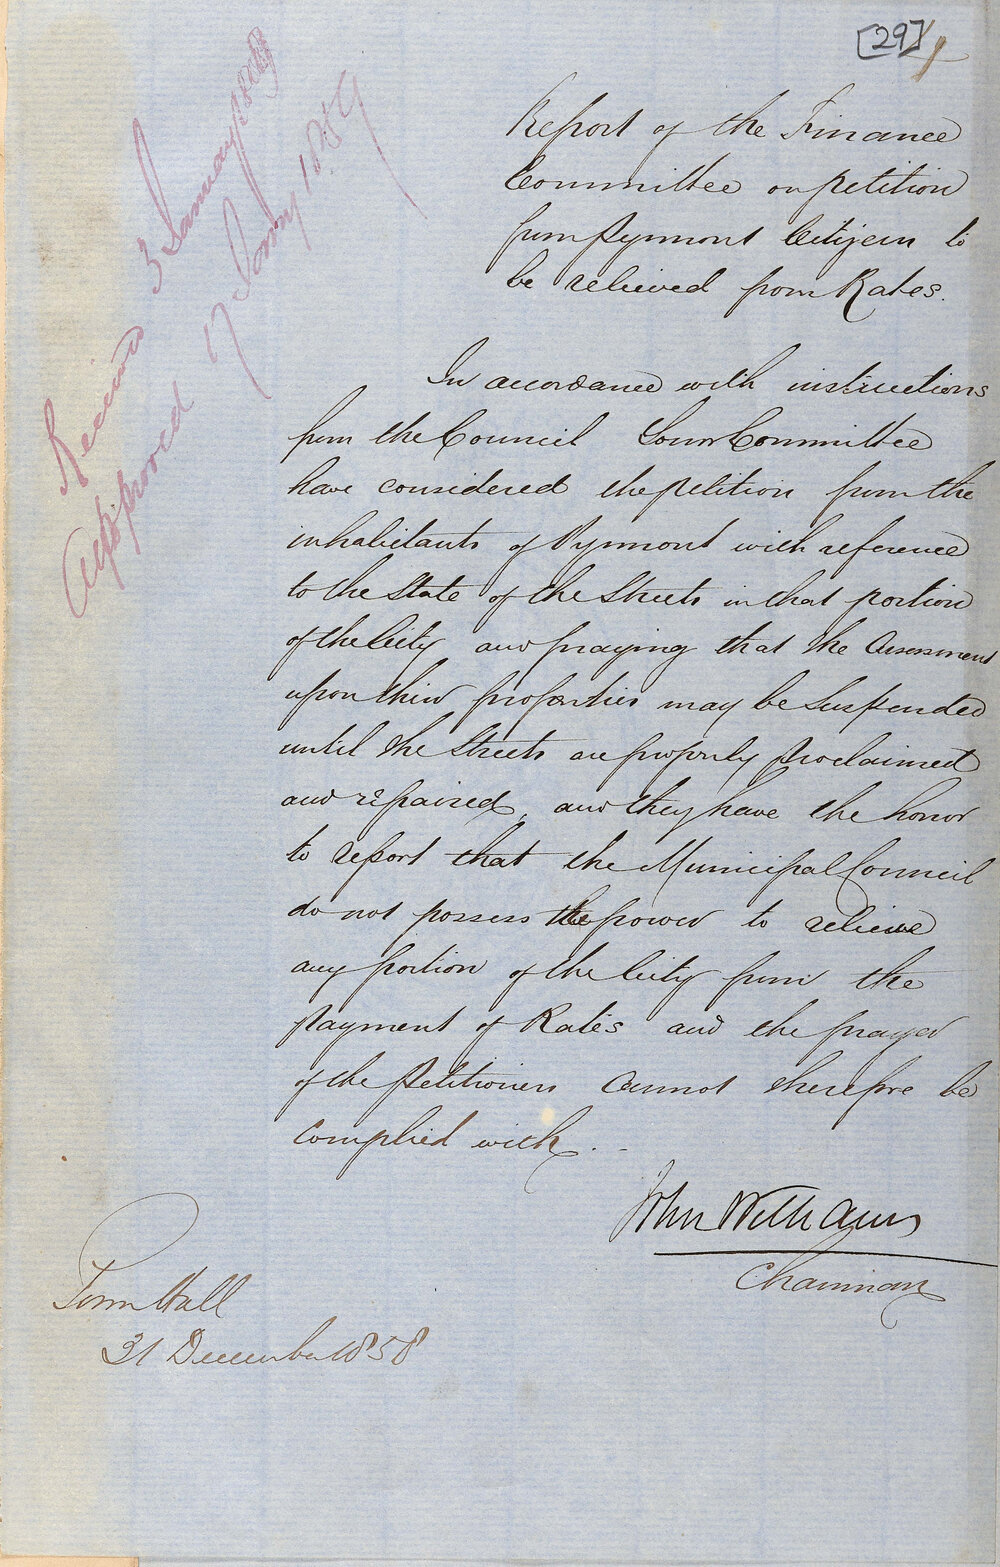 [29]
Received 3 January 1859
Approved 17 January 1859
Report of the Finance
Committee on petition
from Pyrmont Citizens to
be relieved from Rates.
In accordance with instructions
from the Council Your Committee
have considered the petition from the
inhabitants of Pyrmont with reference
to the State of the Streets in that portion
of the City and praying that the Assessment
upon their properties may be suspended
until the Streets are properly proclaimed
and repaired, and they have the honor
to report that the Municipal Council
do not possess the power to relieve
any portion of the City from the
payment of Rates and the prayer
of the Petitioners cannot therefore be
complied with.
John Williams
Chairman
Town Hall
31 December 1858